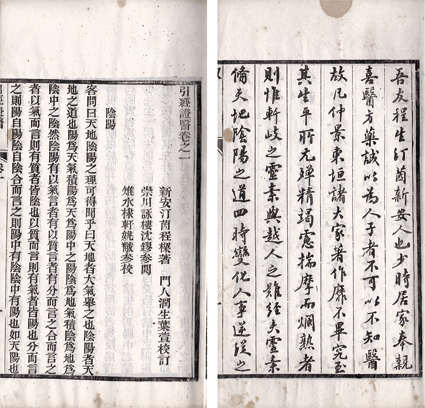 吾友程生汀茵新安人也少時居家奉親
喜醫方藥誠以為人子者不可以不知醫
故凡仲景東垣諸大家著作靡不畢究至
其生平所尤殫精竭慮揣摩而爛熟者
則惟軒岐之靈素與越人之難經夫靈素
備天地陰陽之道四時變化人事逆從之
引經證醫卷之一
新安汀茵程樑著 門人潤生葉萱校訂
崇川詠樓沈鏐參閱
雉水棣軒姚黻參校
陰陽
客問曰天地陰陽之理可得聞乎曰天地者大氣舉之也陰陽者天
地之道也陽爲天氣積陽爲天陽中之陽陰爲地氣積陰爲地
陰中之陰然陰陽有以氣質言者有分而言之合而言之
者以氣而言則有質者皆陰也以質而言則有氣者皆陽也分而言
之則陽自陽陰自陰合而言之則陽中有陰陰中有陽也如天陽也